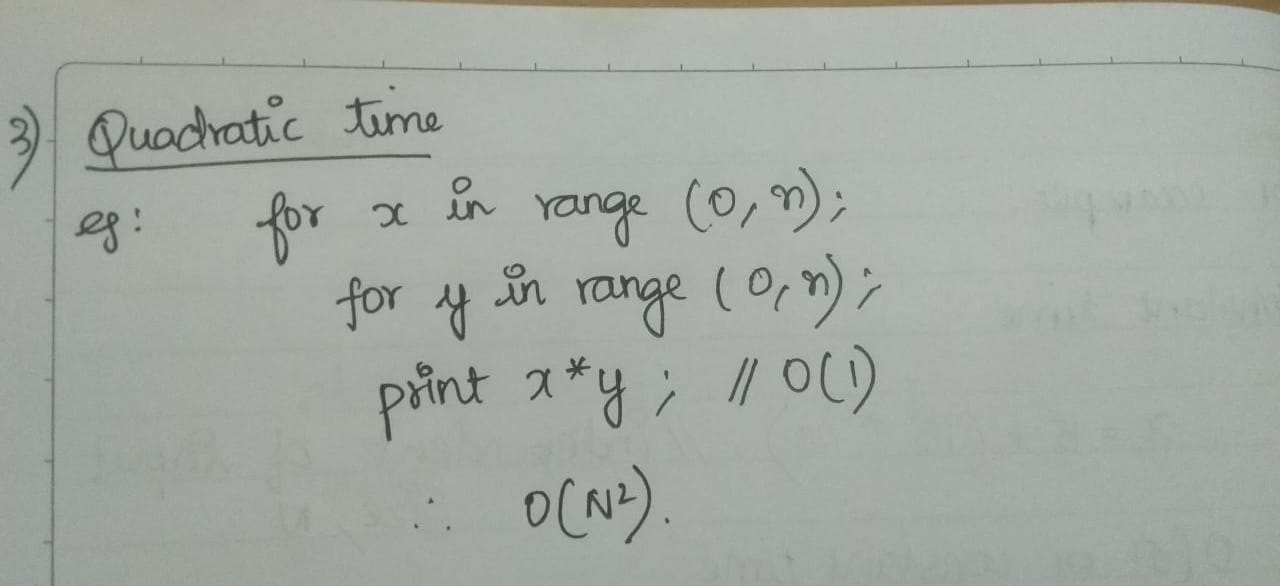 3) Quadratic time
eg: for x in range (0, n);
for y in range (0, n);
print x*y; // O(1)
∴ O(N²).